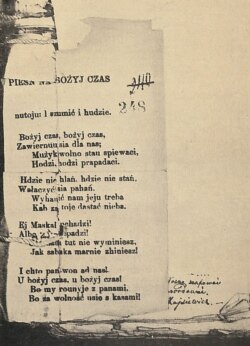 PIEŚŃ NA BOŻYJ CZAS
248
nutoju: I szumić i hudzie.
Bożyj czas, bożyj czas,
Zawiernuŭsia dla nas;
Mużyk wolno staŭ spiewaci,
Hodzi, hodzi prapadaci.
Hdzie nie hlań, hdzie nie stań,
Wałaczyŭsia pahań.
Wyhanić nam jeju treba
Kab za toje dastać nieba.
Ej Maskal uchadzi!
Albo z propadzi!
tut nie wyminiesz,
Jak sabaka marnie zhinies!
I chto pan won ad nas!
U bożyj czas, u bożyj czas!
Bo my rounyje z panami,
Bo za wolność usie s kasami!